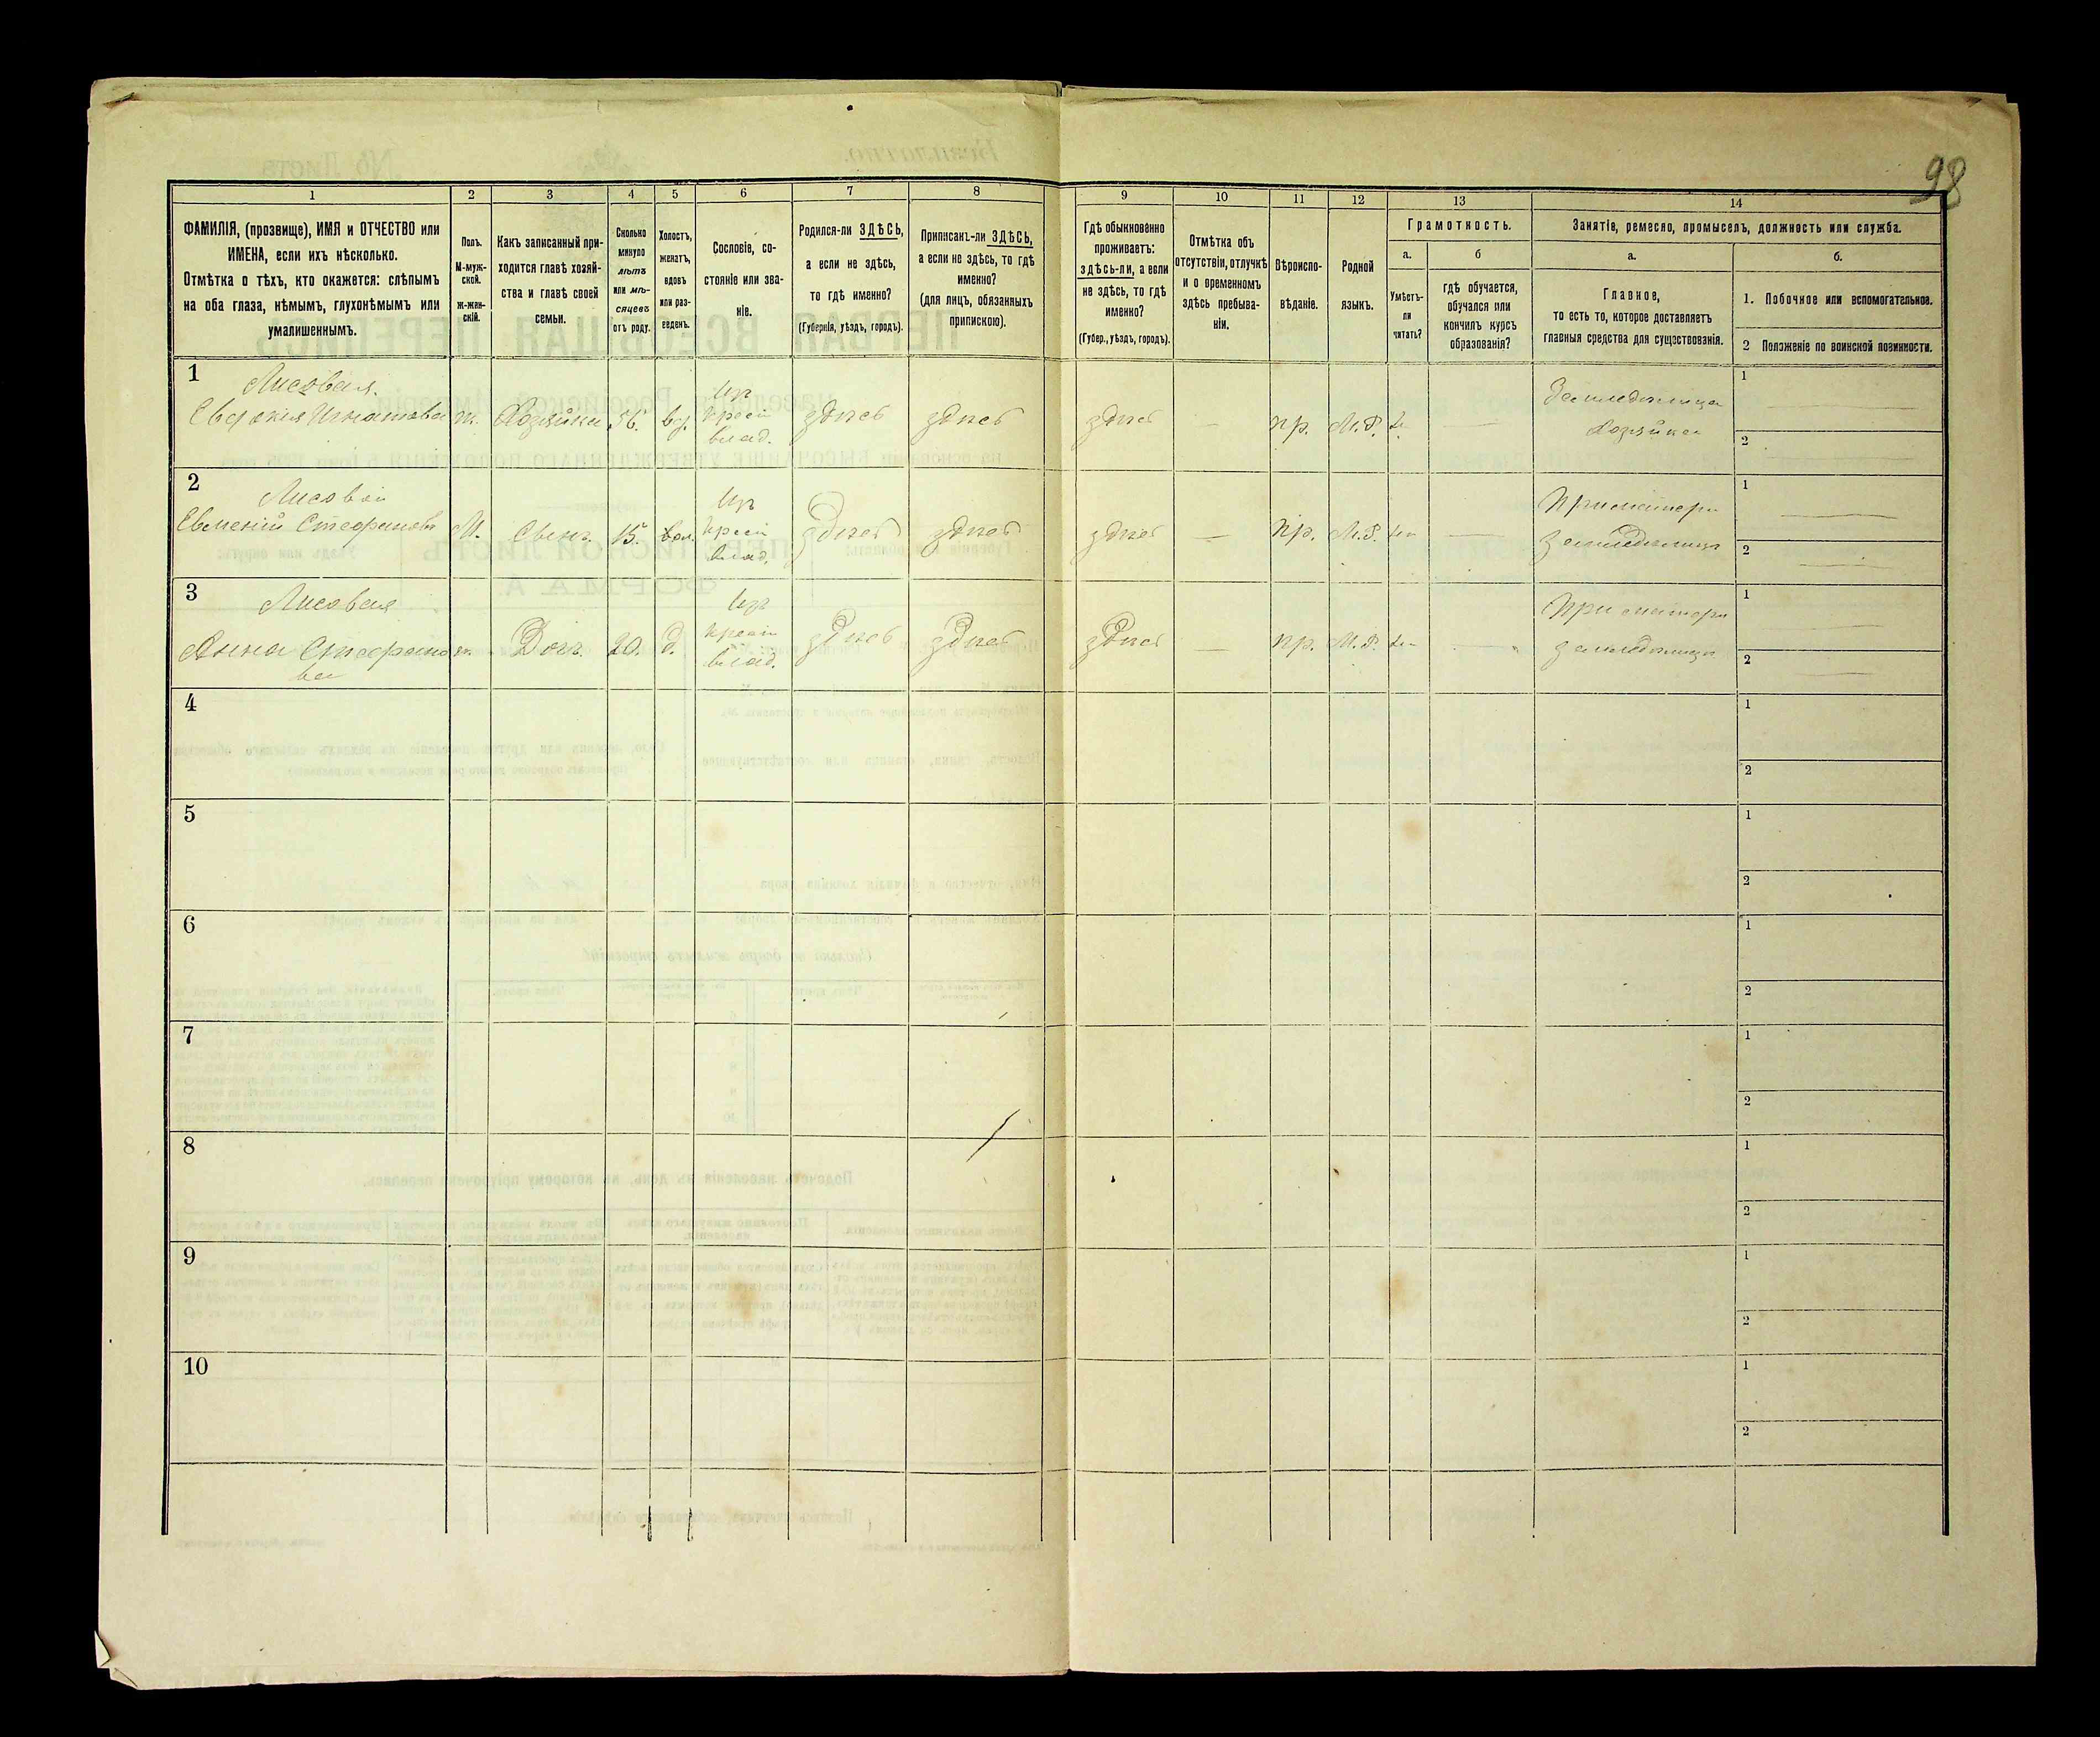 98
1
2
3
4
5
6
7
8
9
10
11
12
13
14
ФАМИЛІЯ, (прозвище), ИМЯ и ОТЧЕСТВО или
ИМЕНА, если ихъ нѣсколько.
Отмѣтка о тѣхъ, кто окажется: слѣпымъ
на оба глаза, нѣмымъ, глухонѣмымъ или
умалишеннымъ.
Полъ.
М-муж-
ской.
Ж-жен-
скій.
Какъ записанный при-
ходится главѣ хозяй-
ства и главѣ своей
семьи.
Сколько
минуло
лѣтъ
или мѣ-
сяцевъ
отъ роду.
Холостъ,
женатъ,
вдовъ
или раз-
веденъ.
Сословіе, со-
стояніе или зва-
ніе.
Родился-ли ЗДѢСЬ,
а если не здѣсь,
то гдѣ именно?
(Губернія, уѣздъ, городъ).
Приписанъ-ли ЗДѢСЬ,
а если не здѣсь, то гдѣ
именно?
(для лицъ, обязанныхъ
припискою).
Гдѣ обыкновенно
проживаетъ:
здѣсь-ли, а если
не здѣсь, то гдѣ
именно?
(Губер., уѣздъ, городъ).
Отмѣтка объ
отсутствіи, отлучкѣ
и о временномъ
здѣсь пребыва-
ніи.
Вѣроиспо-
вѣданіе.
Родной
языкъ.
Грамотность.
а.
Умѣетъ-
ли
читать?
б
гдѣ обучается,
обучался или
кончилъ курсъ
образованія?
Занятіе, ремесло, промыселъ, должность или служба.
а.
Главное,
то есть то, которое доставляетъ
главныя средства для существованія.
б.
1. Побочное или вспомогательное.
2 Положеніе по воинской повинности.
1
Лисовая
Евдокія Игнатова
ж.
Хозяйка
56.
вд.
Изъ
крест
влад.
здѣсь
здѣсь
здѣсь
—
пр.
М.Р.
—
Земледѣлица
Хозяйка
1
2
2
Лисовой
Стефановъ
М.
Сынъ
15.
Изъ
крест
влад.
здѣсь
здѣсь
здѣсь
—
пр.
М.Р.
—
При матери
1
2
3
Лисовая
Анна Стефано
ва
ж.
Дочь
20.
д.
Изъ
крест
влад.
здѣсь
здѣсь
здѣсь
—
пр.
М.Р.
—
При матери
1
2
4
1
2
5
1
2
6
1
2
7
1
2
8
1
2
9
1
2
10
1
2